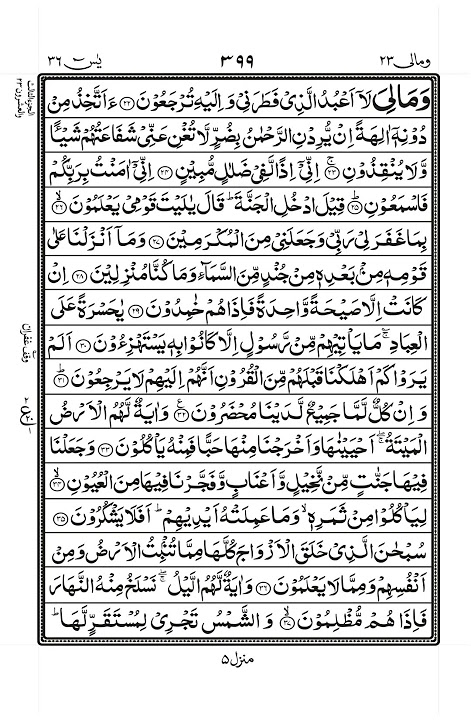 ومالی ٢٣ ٣٩٩ یٰسٓ ٣٦
وَمَالِيَ لَآ اَعْبُدُ الَّذِيْ فَطَرَنِيْ وَاِلَيْهِ تُرْجَعُوْنَ ﴿٢٢﴾ ءَاَتَّخِذُ مِنْ
دُوْنِهٖٓ اٰلِهَةً اِنْ يُّرِدْنِ الرَّحْمٰنُ بِضُرٍّ لَّا تُغْنِ عَنِّيْ شَفَاعَتُهُمْ شَيْـًٔا
وَّلَا يُنْقِذُوْنِ ﴿٢٣﴾ اِنِّيْٓ اِذًا لَّفِيْ ضَلٰلٍ مُّبِيْنٍ ﴿٢٤﴾ اِنِّيْٓ اٰمَنْتُ بِرَبِّكُمْ
فَاسْمَعُوْنِ ﴿٢٥﴾ قِيْلَ ادْخُلِ الْجَنَّةَ ؕ قَالَ يٰلَيْتَ قَوْمِيْ يَعْلَمُوْنَ ﴿٢٦﴾
بِمَا غَفَرَ لِيْ رَبِّيْ وَجَعَلَنِيْ مِنَ الْمُكْرَمِيْنَ ﴿٢٧﴾ وَمَآ اَنْزَلْنَا عَلٰى
قَوْمِهٖ مِنْۢ بَعْدِهٖ مِنْ جُنْدٍ مِّنَ السَّمَآءِ وَمَا كُنَّا مُنْزِلِيْنَ ﴿٢٨﴾ اِنْ
كَانَتْ اِلَّا صَيْحَةً وَّاحِدَةً فَاِذَا هُمْ خٰمِدُوْنَ ﴿٢٩﴾ يٰحَسْرَةً عَلَى
الْعِبَادِ ۚ مَا يَاْتِيْهِمْ مِّنْ رَّسُوْلٍ اِلَّا كَانُوْا بِهٖ يَسْتَهْزِءُوْنَ ﴿٣٠﴾ اَلَمْ
يَرَوْا كَمْ اَهْلَكْنَا قَبْلَهُمْ مِّنَ الْقُرُوْنِ اَنَّهُمْ اِلَيْهِمْ لَا يَرْجِعُوْنَ ﴿٣١﴾
وَاِنْ كُلٌّ لَّمَّا جَمِيْعٌ لَّدَيْنَا مُحْضَرُوْنَ ﴿٣٢﴾ وَاٰيَةٌ لَّهُمُ الْاَرْضُ
الْمَيْتَةُ ۚ اَحْيَيْنٰهَا وَاَخْرَجْنَا مِنْهَا حَبًّا فَمِنْهُ يَاْكُلُوْنَ ﴿٣٣﴾ وَجَعَلْنَا
فِيْهَا جَنّٰتٍ مِّنْ نَّخِيْلٍ وَّاَعْنَابٍ وَّفَجَّرْنَا فِيْهَا مِنَ الْعُيُوْنِ ﴿٣٤﴾
لِيَاْكُلُوْا مِنْ ثَمَرِهٖ ۙ وَمَا عَمِلَتْهُ اَيْدِيْهِمْ ؕ اَفَلَا يَشْكُرُوْنَ ﴿٣٥﴾
سُبْحٰنَ الَّذِيْ خَلَقَ الْاَزْوَاجَ كُلَّهَا مِمَّا تُنْۢبِتُ الْاَرْضُ وَمِنْ
اَنْفُسِهِمْ وَمِمَّا لَا يَعْلَمُوْنَ ﴿٣٦﴾ وَاٰيَةٌ لَّهُمُ الَّيْلُ ۚ نَسْلَخُ مِنْهُ النَّهَارَ
فَاِذَا هُمْ مُّظْلِمُوْنَ ﴿٣٧﴾ وَالشَّمْسُ تَجْرِيْ لِمُسْتَقَرٍّ لَّهَا ؕ
منزل ٥
وقف غفران